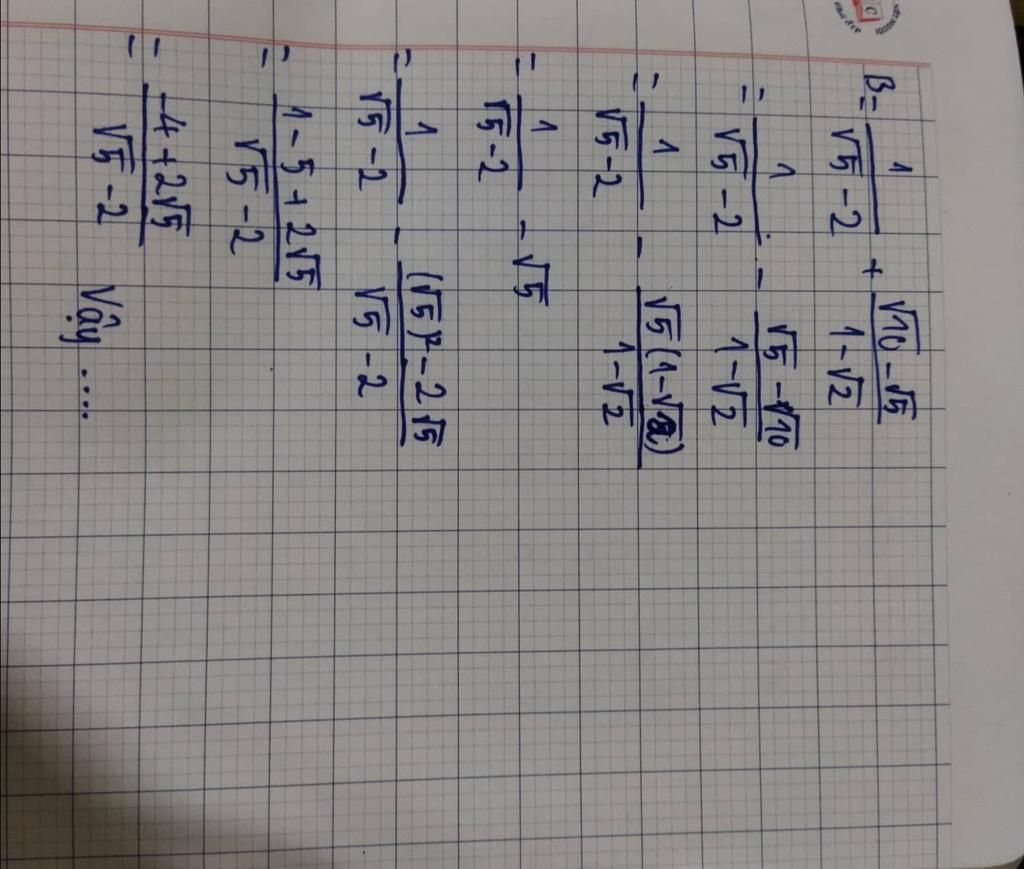 B = \frac{1}{\sqrt{5} - 2} + \frac{\sqrt{10} - \sqrt{5}}{1 - \sqrt{2}}
= \frac{1}{\sqrt{5} - 2} - \frac{\sqrt{5} - \sqrt{10}}{1 - \sqrt{2}}
= \frac{1}{\sqrt{5} - 2} - \frac{\sqrt{5}(1 - \sqrt{2})}{1 - \sqrt{2}}
= \frac{1}{\sqrt{5} - 2} - \sqrt{5}
= \frac{1}{\sqrt{5} - 2} - \frac{(\sqrt{5})^2 - 2\sqrt{5}}{\sqrt{5} - 2}
= \frac{1 - 5 + 2\sqrt{5}}{\sqrt{5} - 2}
= \frac{-4 + 2\sqrt{5}}{\sqrt{5} - 2}
Vậy ....